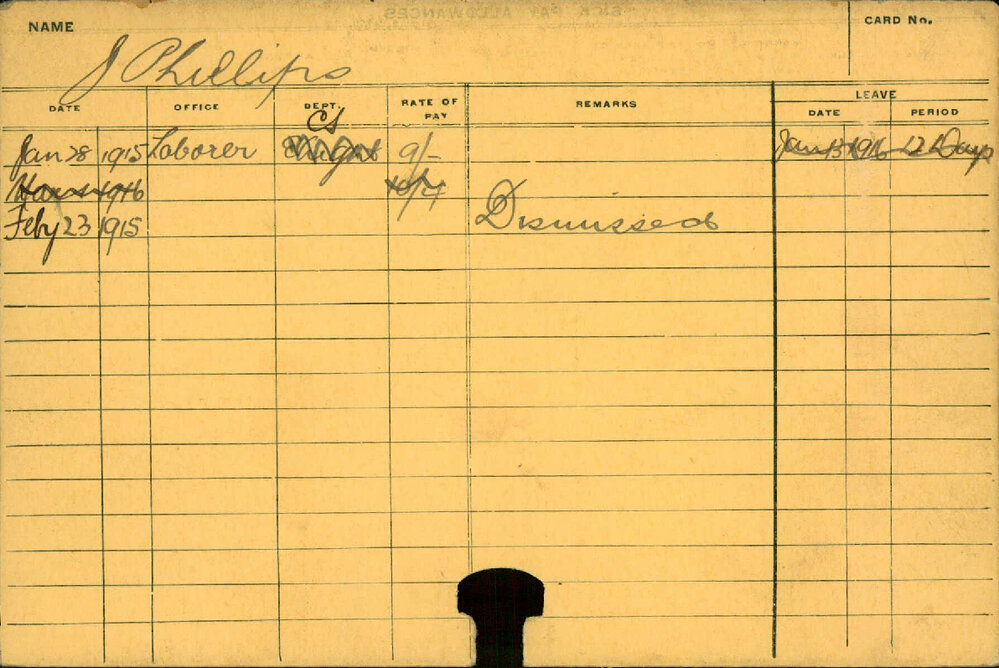 NAME
CARD No.
J Phillips
DATE OFFICE DEPT. RATE OF PAY REMARKS LEAVE
DATE PERIOD
CS
Jan 28 1915 Laborer 9/- Jan 13 1916 12 Days
1916 10/4
Feby 23 1915 Dismissed